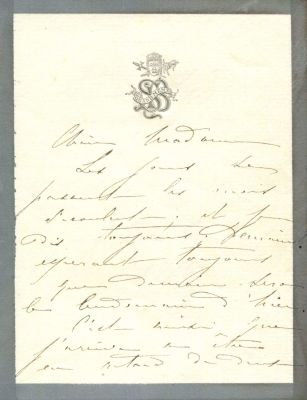 Chère Madame
Les jours se
passent les mois
s'écoulent, et je
dis toujours Demain
espérant toujours
que demain sera
le lendemain d'hier
C'est ainsi que
j'arrive à être
en retard de deux